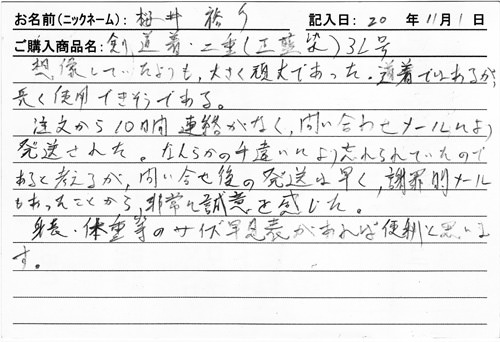 お名前(ニックネーム): 桜井 裕り 記入日: 20 年 11月 1日
ご購入商品名: 剣道着・二重(正藍染)3L号
想像していたよりも、大きく頑丈であった。道着ではあるが、
長く使用できそうである。
注文から10日間 連絡がなく、問い合わせメールにより
発送された。なんらかの手違いにより忘れられていたので
あると考えるが、問い合せ後の発送は早く、謝罪的メール
もあったことから、非常に誠意を感じた。
身長・体重等のサイズ早見表があれば便利と思いま
す。